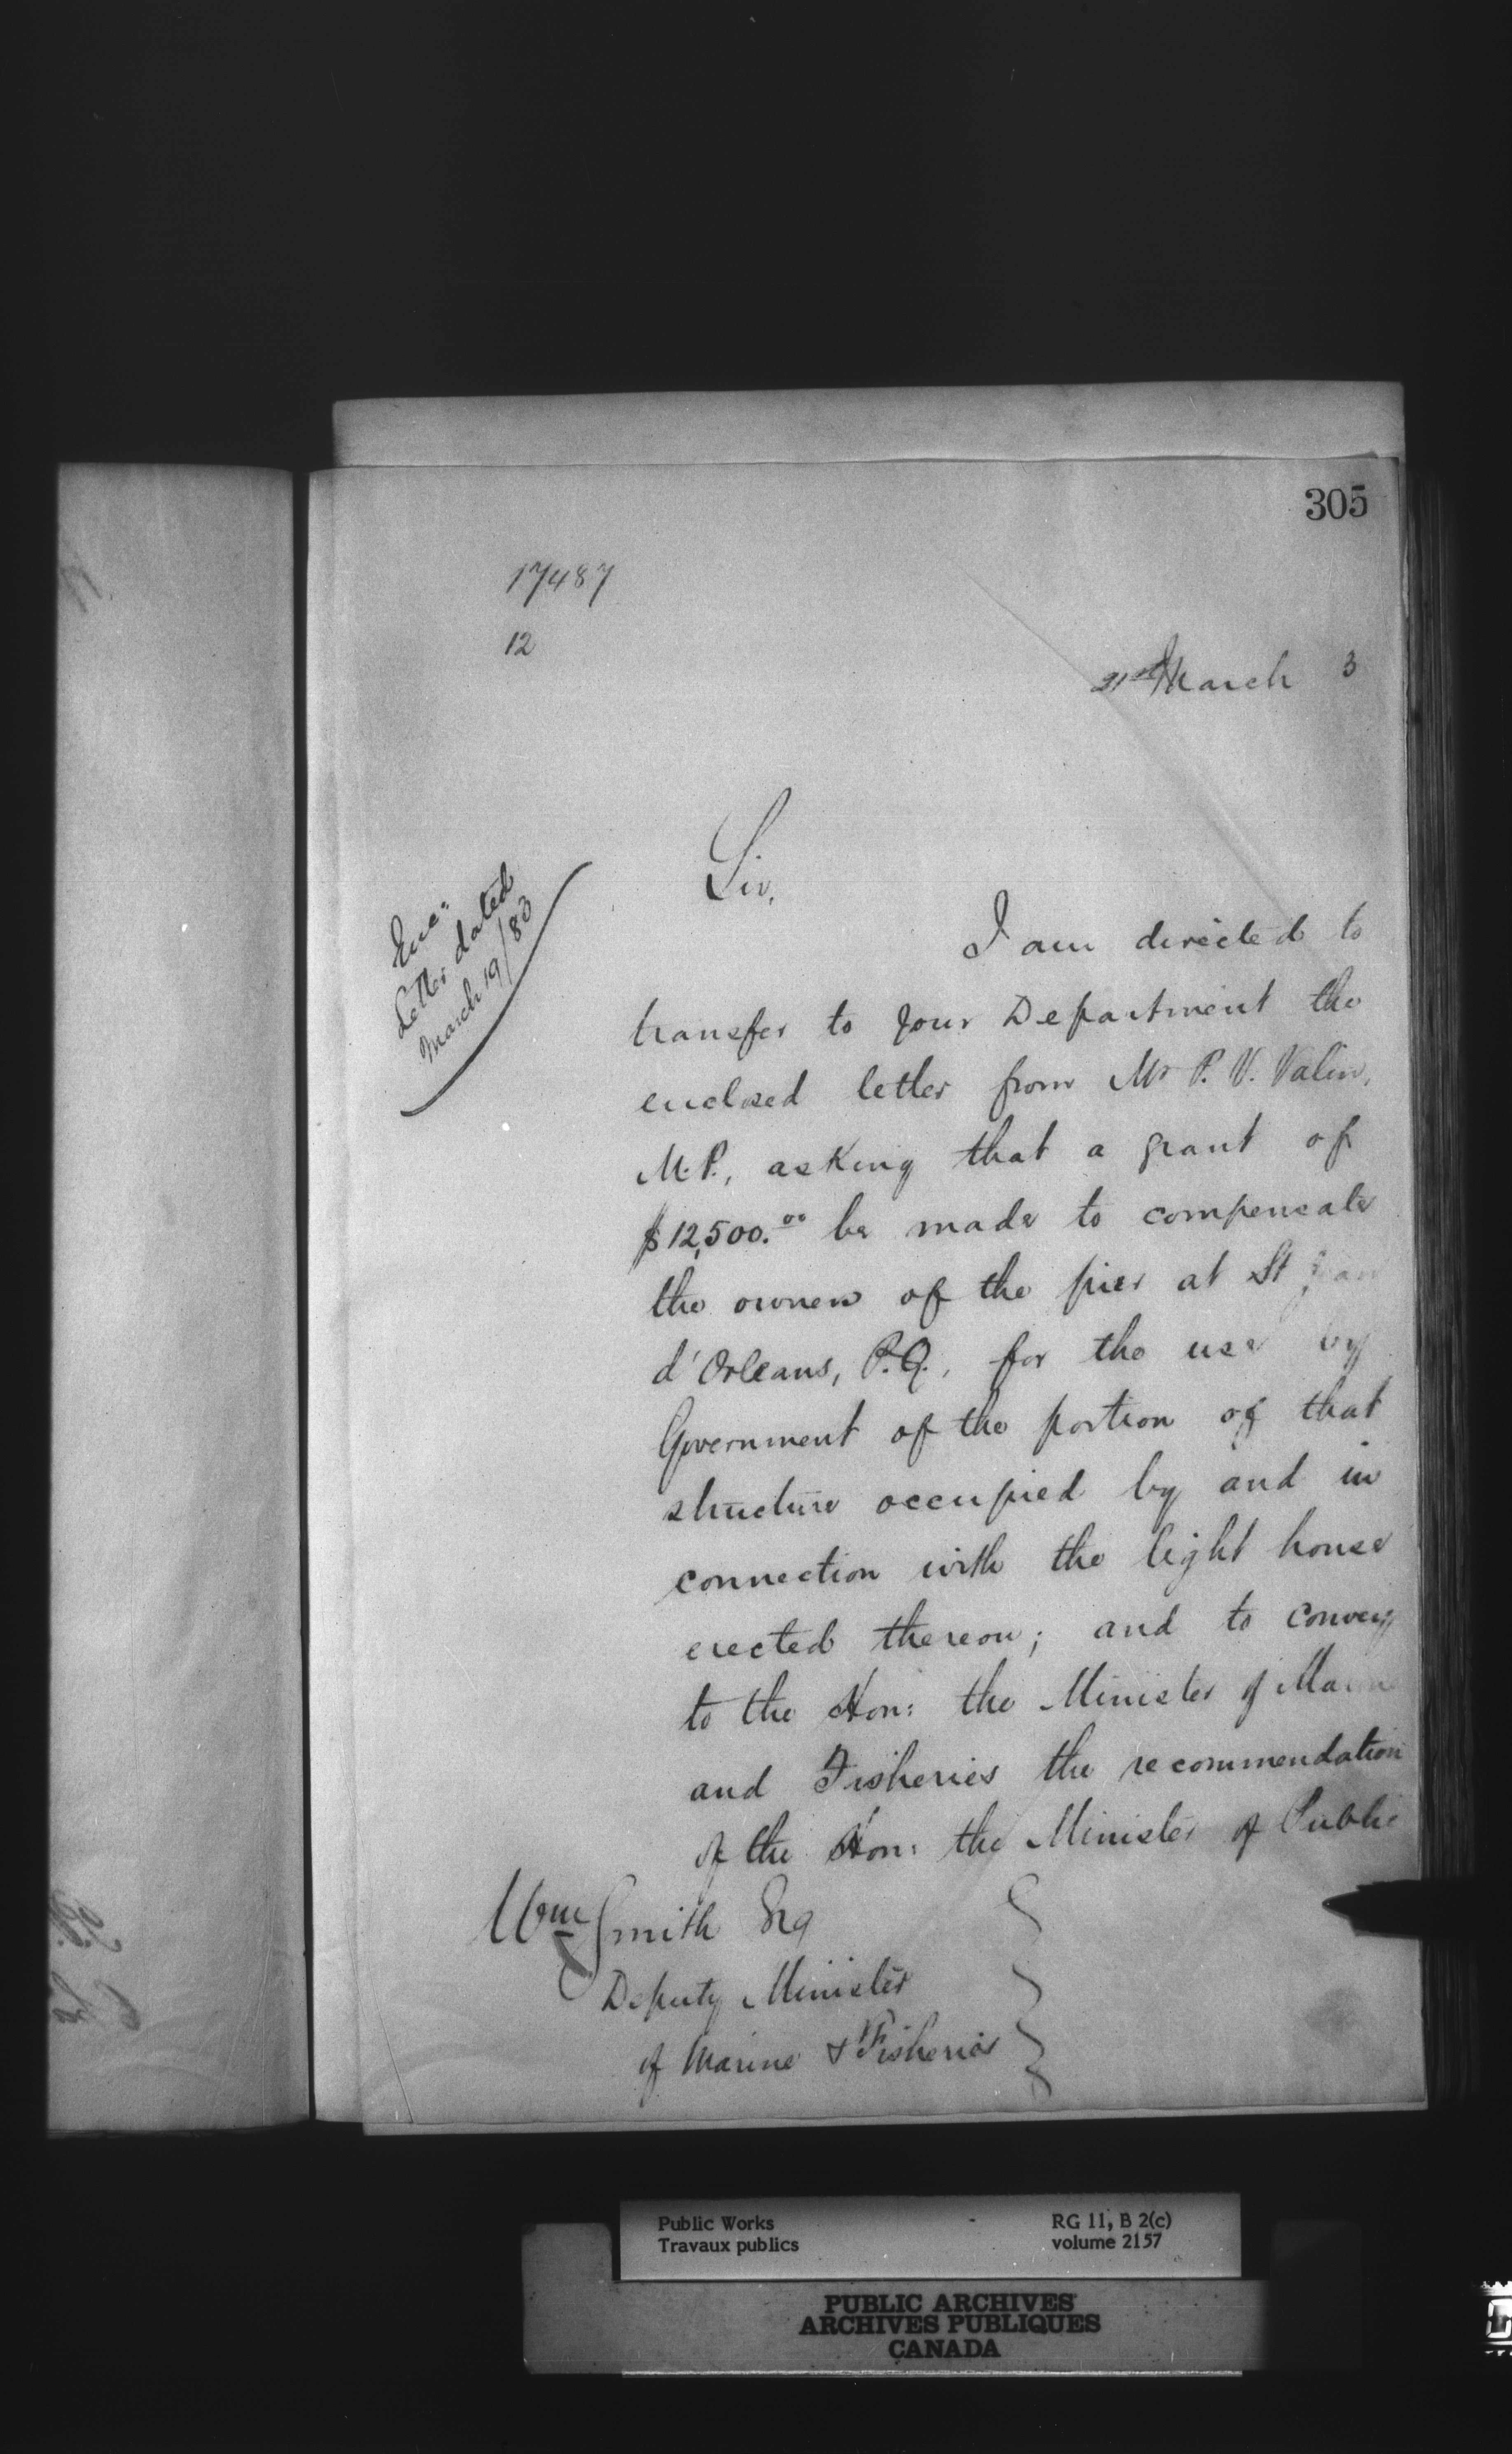 305
17487
12
21st March 3
Enc:
Letter dated
March 19/83
Sir,
I am directed to
transfer to your Department the
enclosed letter from Mr P. V. Valin,
M.P., asking that a grant of
$12,500.00 be made to compensate
the owners of the pier at St Jean
d'Orleans, P.Q., for the use by
Government of the portion of that
structure occupied by and in
connection with the light house
erected thereon; and to convey
to the Hon: the Minister of Marine
and Fisheries the recommendation
of the Hon: the Minister of Public
Wm Smith Esq
Deputy Minister
of Marine & Fisheries
Public Works
Travaux publics
RG 11, B 2(c)
volume 2157
PUBLIC ARCHIVES
ARCHIVES PUBLIQUES
CANADA